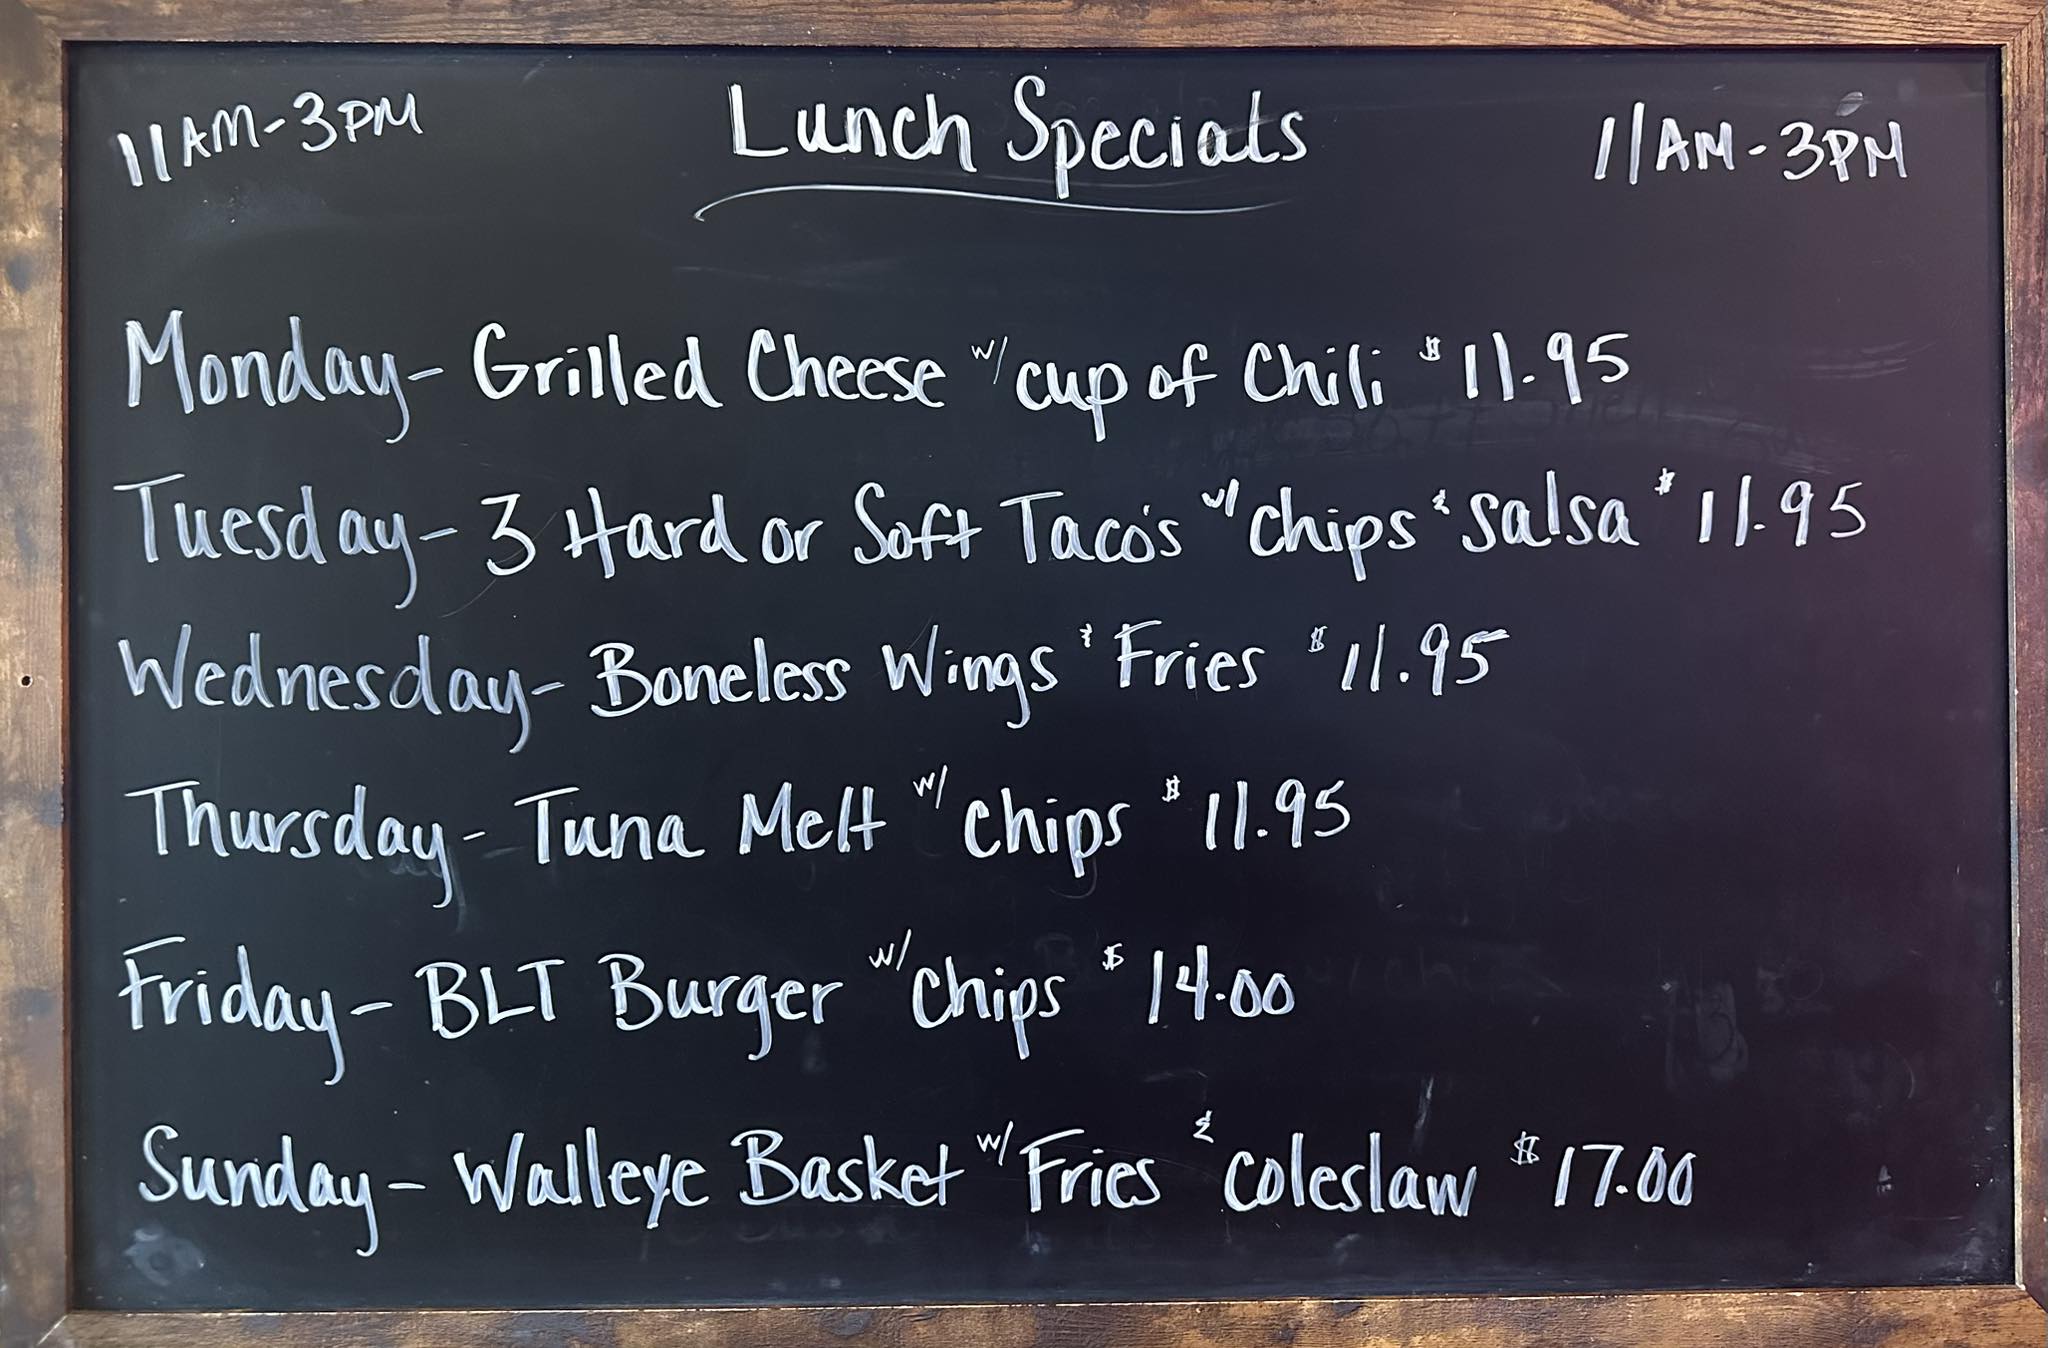 11AM-3PM Lunch Specials 11AM-3PM
Monday- Grilled Cheese w/ cup of Chili $11.95
Tuesday- 3 Hard or Soft Taco's w/ chips & salsa $11.95
Wednesday- Boneless Wings & Fries $11.95
Thursday- Tuna Melt w/ chips $11.95
Friday- BLT Burger w/ chips $14.00
Sunday- Walleye Basket w/ Fries & coleslaw $17.00